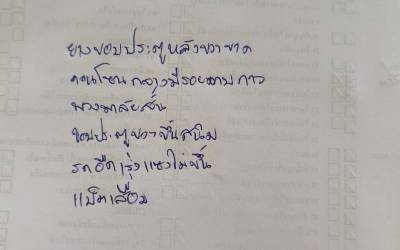 ยางขอบประตูหลังขวาขาด
คอนโซนกลางมีรอยคาบกาว
พวงมาลัยสั่น
ขอบประตูขวาขึ้นสนิม
รถอืดเร่งแซงไม่ขึ้น
แบ็ตเสื่อม